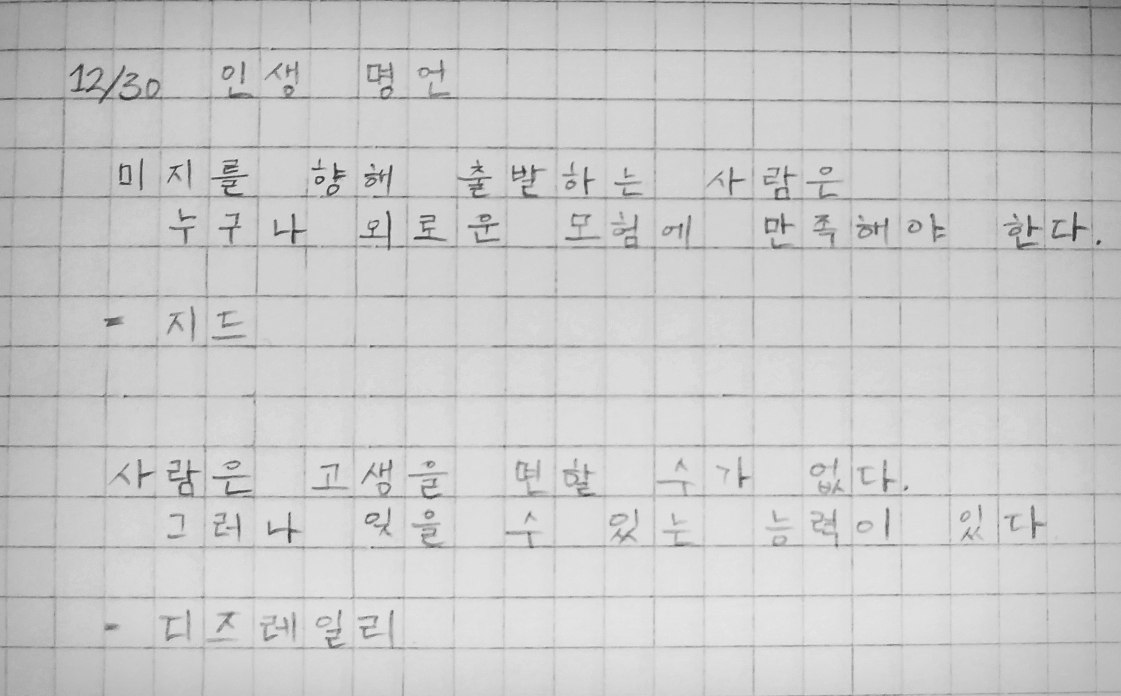 12/30 인생 명언
미지를 향해 출발하는 사람은
누구나 외로운 모험에 만족해야 한다.
- 지드
사람은 고생을 면할 수가 없다.
그러나 잊을 수 있는 능력이 있다
- 디즈레일리